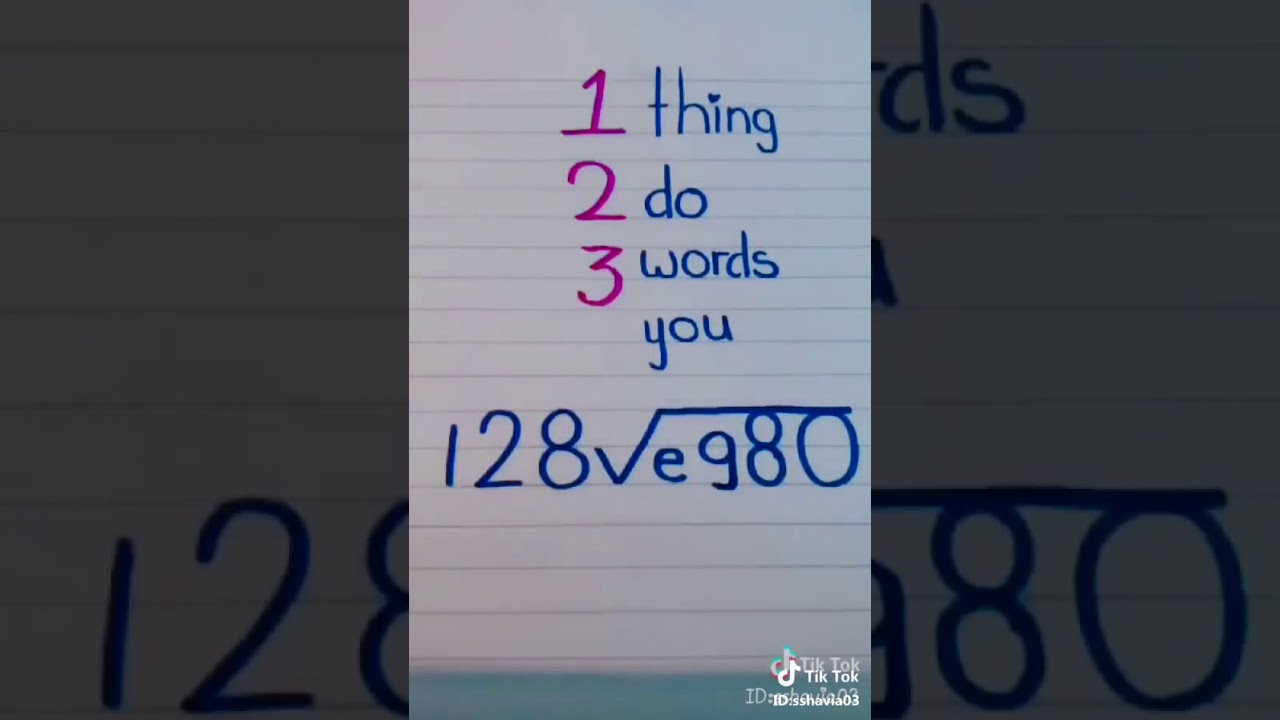 1 thing
2 do
3 words
you
128√eg80
Tik Tok
ID:sshavia03